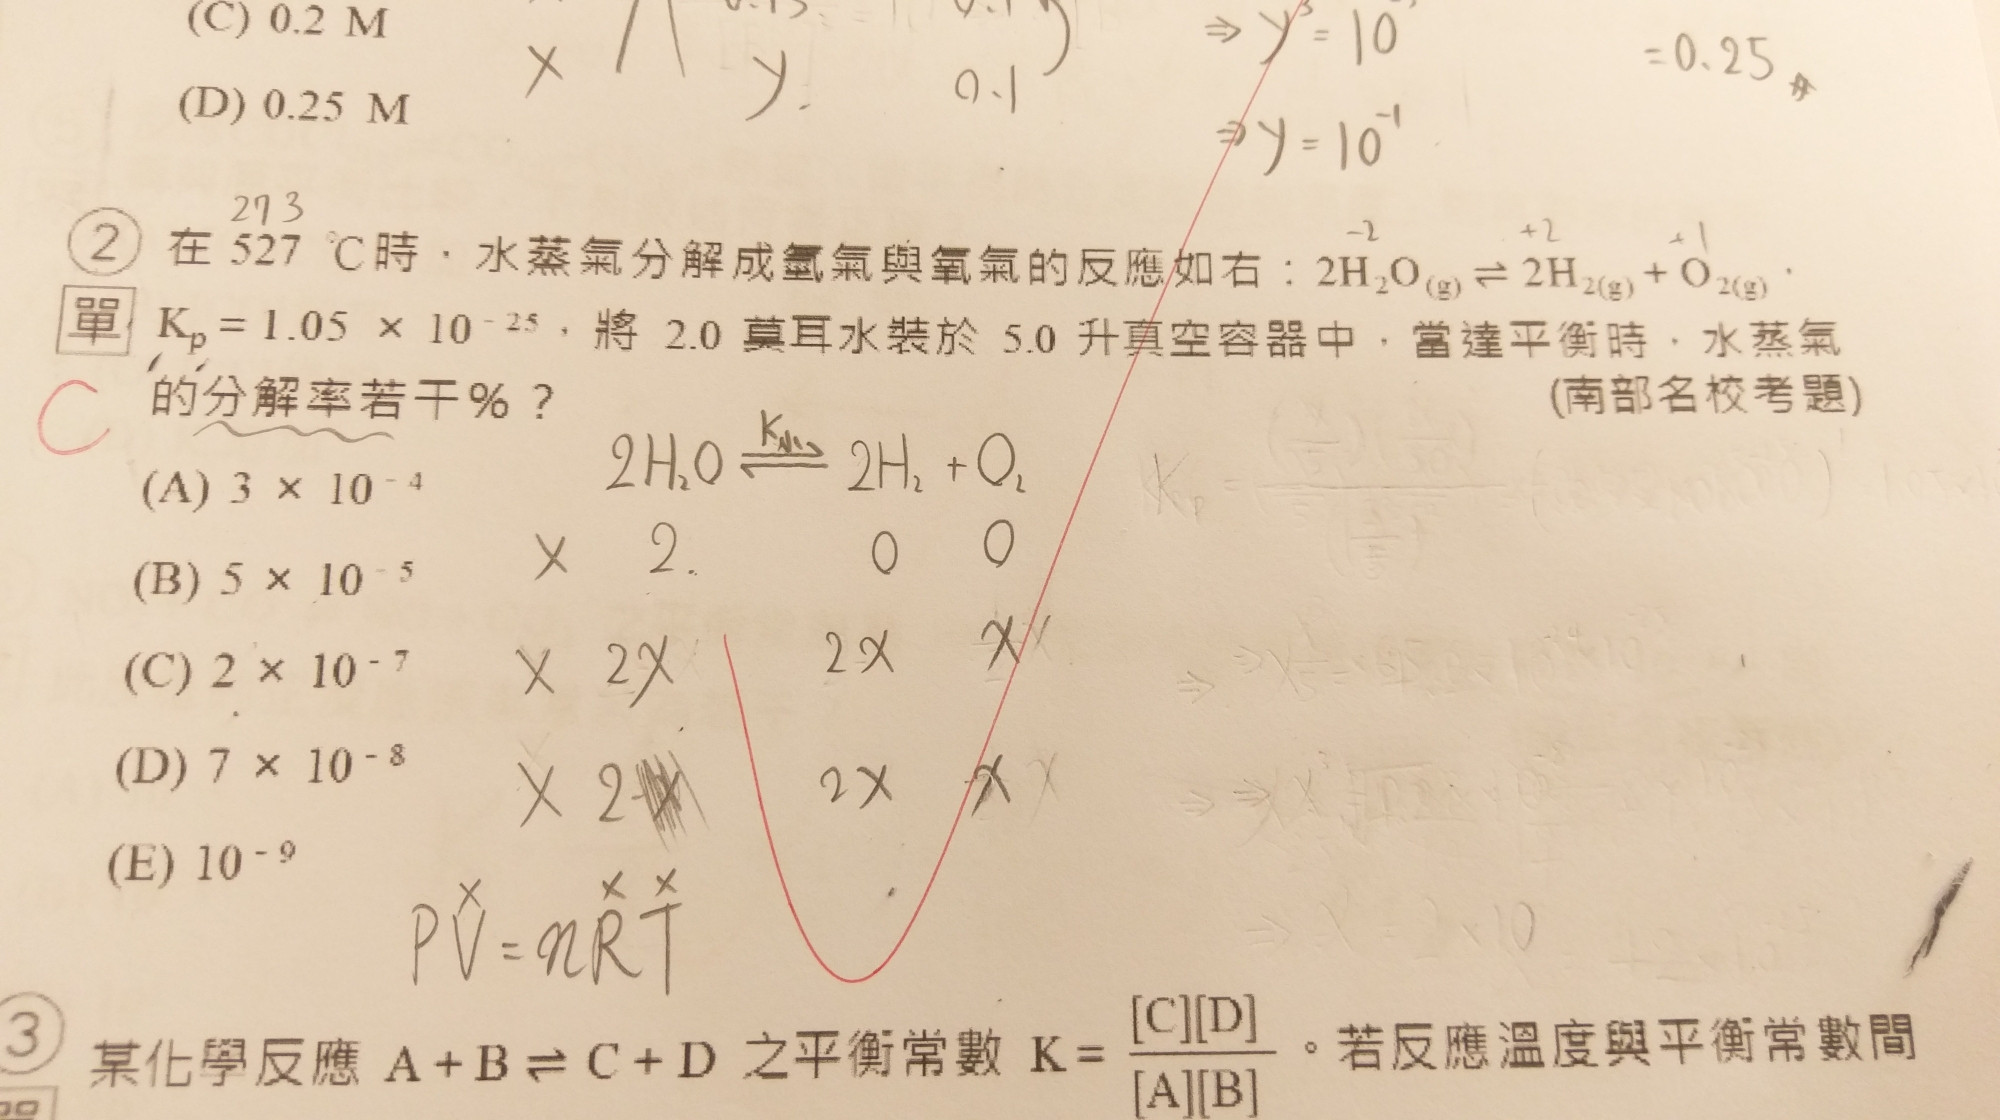 (C) 0.2 M
⇒ y³ = 10
= 0.25
(D) 0.25 M
y. 0.1
⇒ y = 10⁻¹
273
-2 +2 +1
② 在 527 ℃時，水蒸氣分解成氫氣與氧氣的反應如右：2H₂O(g) ⇌ 2H₂(g) + O₂(g)，
單 Kp = 1.05 × 10⁻²⁵，將 2.0 莫耳水裝於 5.0 升真空容器中，當達平衡時，水蒸氣
C 的分解率若干%？ (南部名校考題)
2H₂O ⇌ 2H₂ + O₂
(A) 3 × 10⁻⁴
X 2. 0 0
(B) 5 × 10⁻⁵
X 2x 2x x
(C) 2 × 10⁻⁷
X 2 2x x
(D) 7 × 10⁻⁸
(E) 10⁻⁹
PV = nRT
③ 某化學反應 A + B ⇌ C + D 之平衡常數 K = [C][D] / [A][B]。若反應溫度與平衡常數間